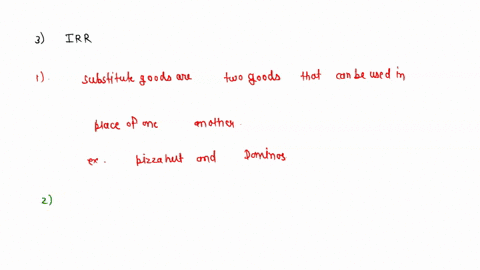 3) IRR
1). substitute goods are two goods that can be used in
place of one another.
ex. pizzahut and Dominos
2)